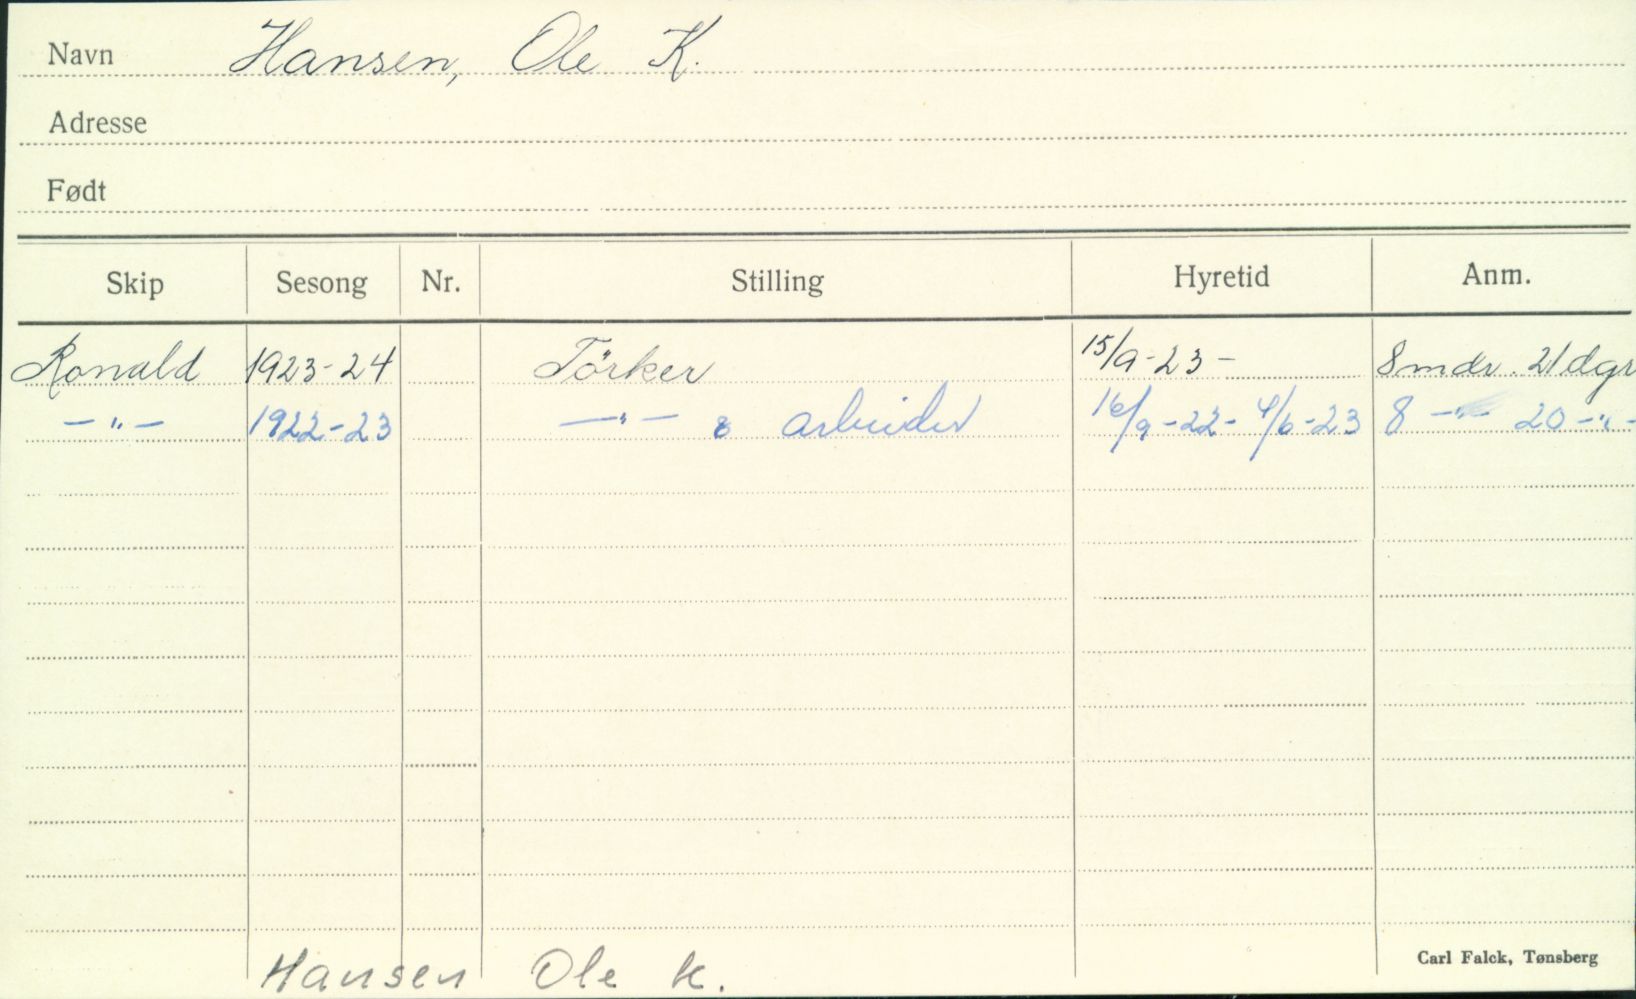 Navn Hansen, Ole K.
Adresse
Født
Skip Sesong Nr. Stilling Hyretid Anm.
Ronald 1923-24 Törker 15/9-23- 8 mdr. 21 dgr
-"- 1922-23 -"- & arbeider 16/9-22- 4/6-23 8 -"- 20 -"-
Hansen Ole K.
Carl Falck, Tønsberg